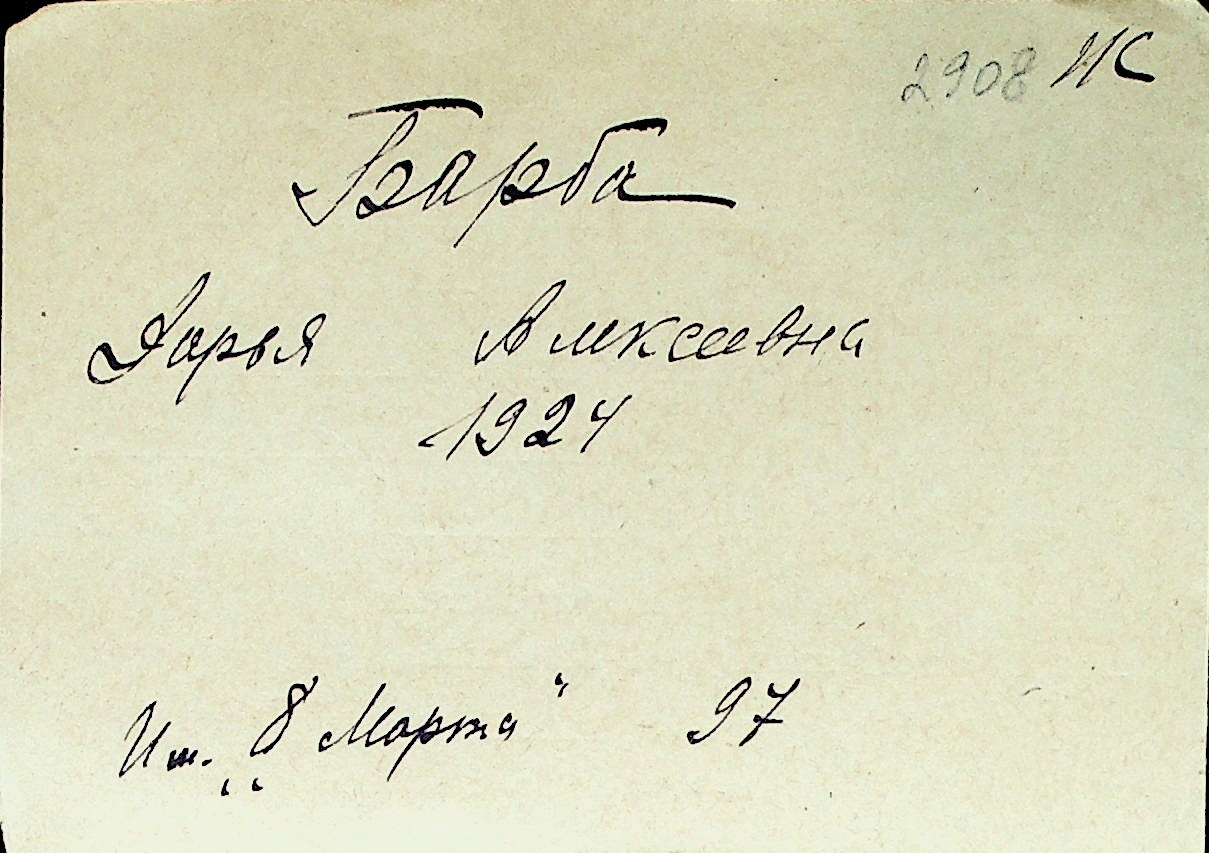 2908 ИС
Барба
Дарья Алексеевна
1924
Им. „8 Марта“ 97